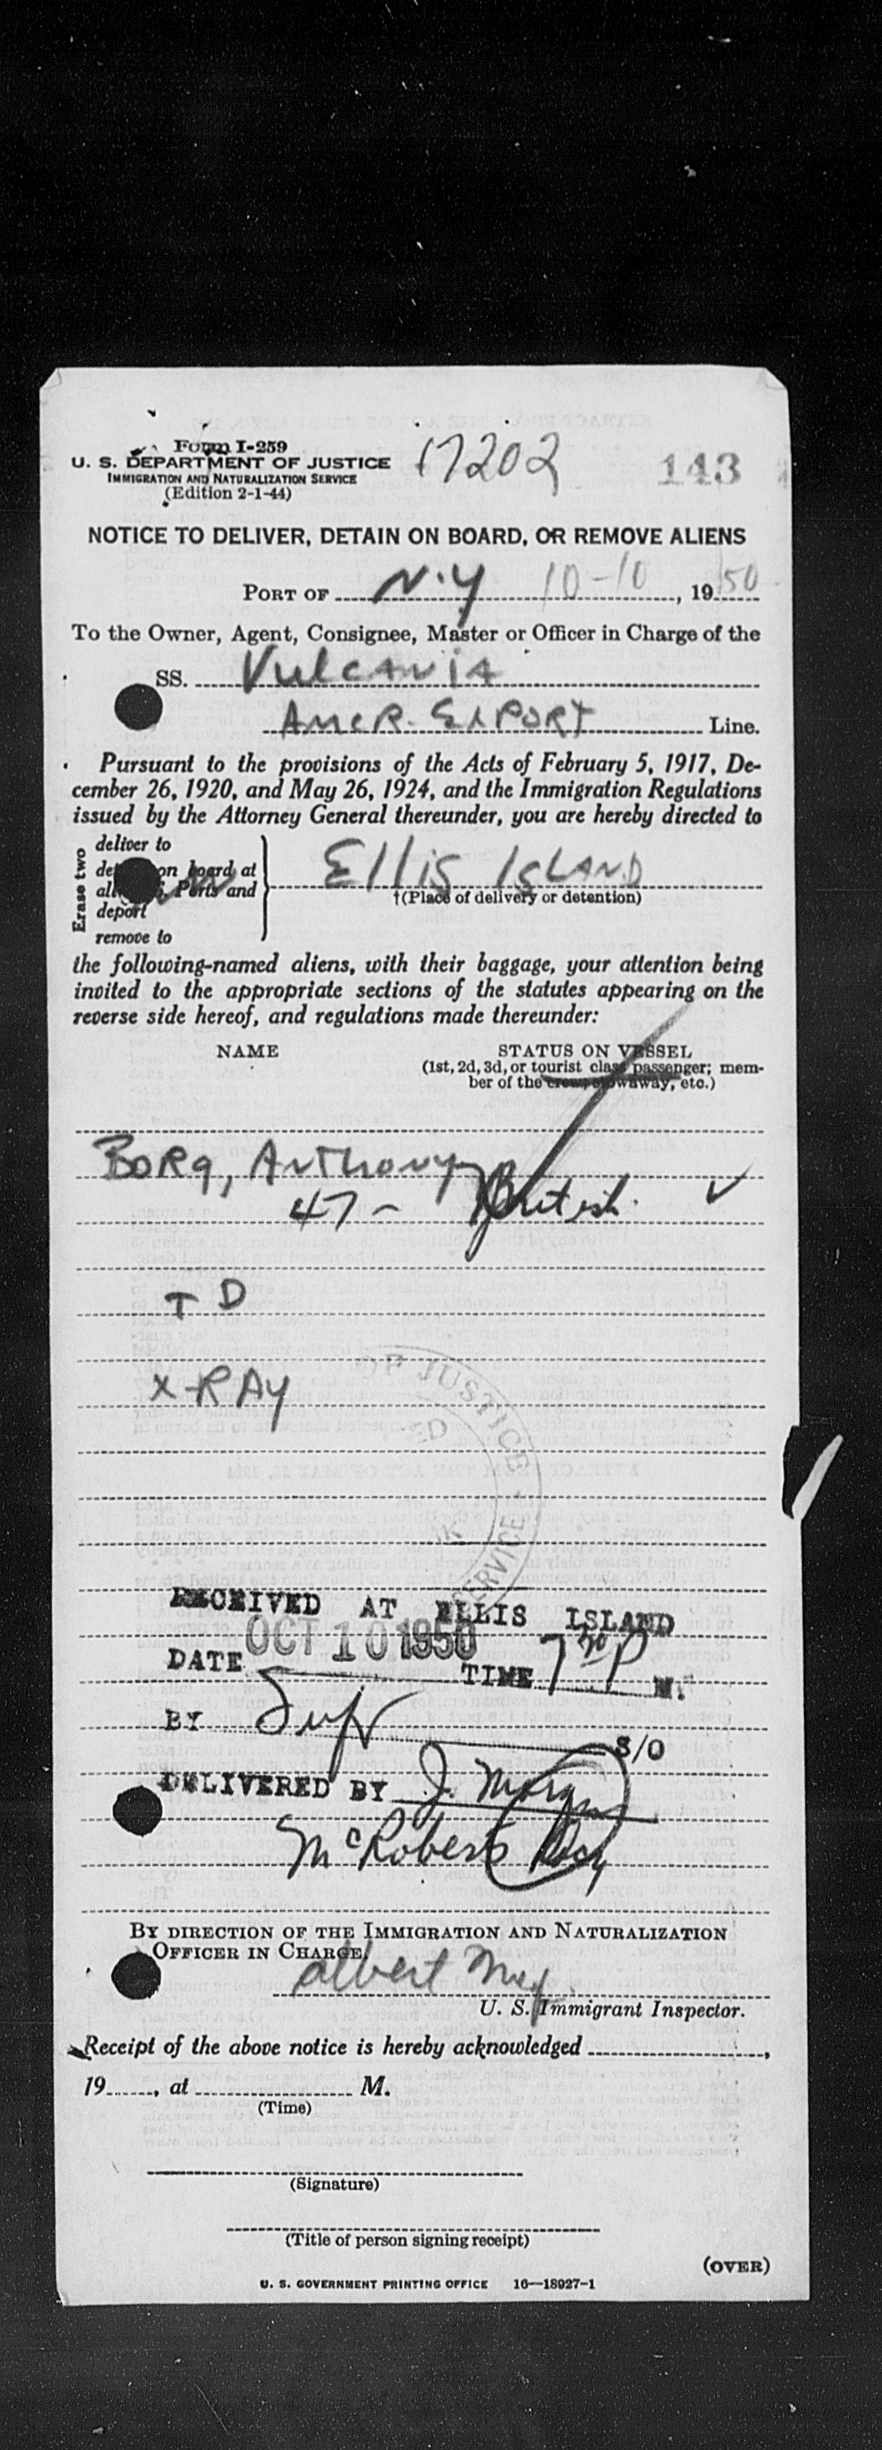 Form I-259
U. S. DEPARTMENT OF JUSTICE
IMMIGRATION AND NATURALIZATION SERVICE
(Edition 2-1-44)
17202
143
NOTICE TO DELIVER, DETAIN ON BOARD, OR REMOVE ALIENS
PORT OF N.Y 10-10, 1950
To the Owner, Agent, Consignee, Master or Officer in Charge of the
SS. VulcANiA
AMER. ExPORT Line.
Pursuant to the provisions of the Acts of February 5, 1917, De-
cember 26, 1920, and May 26, 1924, and the Immigration Regulations
issued by the Attorney General thereunder, you are hereby directed to
Erase two
deliver to
on board at
Ports and
deport
remove to
Ellis IsLAND
†(Place of delivery or detention)
the following-named aliens, with their baggage, your attention being
invited to the appropriate sections of the statutes appearing on the
reverse side hereof, and regulations made thereunder:
NAME
STATUS ON VESSEL
(1st, 2d, 3d, or tourist class passenger; mem-
ber of the crew, stowaway, etc.)
BoRg, AnThony
47 - British. ✓
T D
X-RAy
OF JUSTICE
ED
SERVICE
RECEIVED AT ELLIS ISLAND
DATE OCT 10 1950 TIME 7 30 P M.
BY
S/O
DELIVERED BY J.
McRoberts
BY DIRECTION OF THE IMMIGRATION AND NATURALIZATION
OFFICER IN CHARGE.
albert
U. S. Immigrant Inspector.
Receipt of the above notice is hereby acknowledged ,
19 , at M.
(Time)
(Signature)
(Title of person signing receipt)
(OVER)
U. S. GOVERNMENT PRINTING OFFICE 16—18927-1